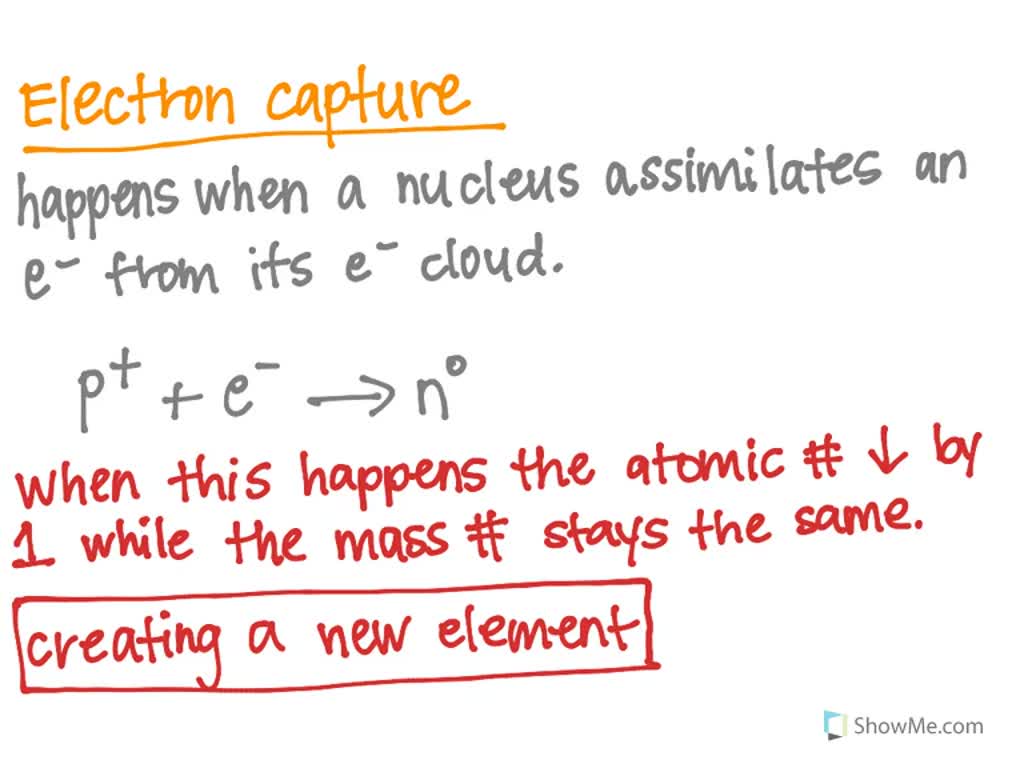 Electron capture
happens when a nucleus assimilates an
e⁻ from its e⁻ cloud.
p⁺ + e⁻ → n⁰
when this happens the atomic # ↓ by
1 while the mass # stays the same.
creating a new element
ShowMe.com